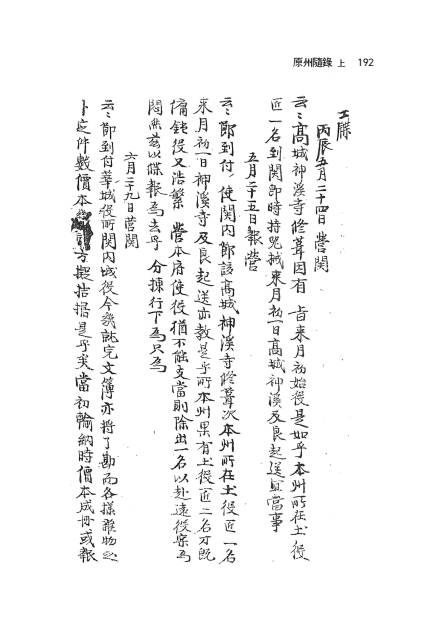 原州隨錄 上 192
工牒
丙辰五月二十四日 營關
云〻高城神溪寺修葺因有 旨來月初始役是如乎本州所在土役
匠一名到關卽時持器械來月初一日高城神溪及良起送宜當事
五月二十五日報營
云〻節到付使關內節該高城神溪寺修葺次本州所在土役匠一名
來月初一日神溪寺及良起送亦敎是乎所本州果有土役匠二名才旣
役又浩繁 營本府使役猶不能支當則除出一名以赴遠役案爲
悶然玆以牒報爲去乎 分揀行下爲只爲
六月二十九日營關
云〻節到付華城役所關內城役今幾訖完文簿亦將了勘而各樣雜物
卜定件數價本 方擬拮据是乎矣當初輸納時價本成冊或報